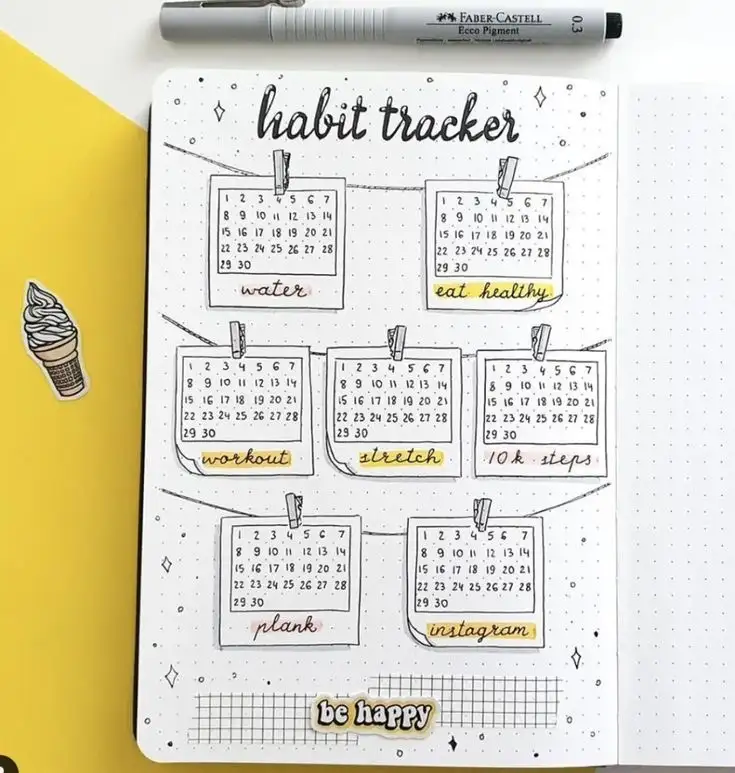 FABER-CASTELL
Ecco Pigment
0.3
habit tracker
1 2 3 4 5 6 7
8 9 10 11 12 13 14
15 16 17 18 19 20 21
22 23 24 25 26 27 28
29 30
water
1 2 3 4 5 6 7
8 9 10 11 12 13 14
15 16 17 18 19 20 21
22 23 24 25 26 27 28
29 30
eat healthy
1 2 3 4 5 6 7
8 9 10 11 12 13 14
15 16 17 18 19 20 21
22 23 24 25 26 27 28
29 30
workout
1 2 3 4 5 6 7
8 9 10 11 12 13 14
15 16 17 18 19 20 21
22 23 24 25 26 27 28
29 30
stretch
1 2 3 4 5 6 7
8 9 10 11 12 13 14
15 16 17 18 19 20 21
22 23 24 25 26 27 28
29 30
10k steps
1 2 3 4 5 6 7
8 9 10 11 12 13 14
15 16 17 18 19 20 21
22 23 24 25 26 27 28
29 30
plank
1 2 3 4 5 6 7
8 9 10 11 12 13 14
15 16 17 18 19 20 21
22 23 24 25 26 27 28
29 30
instagram
be happy